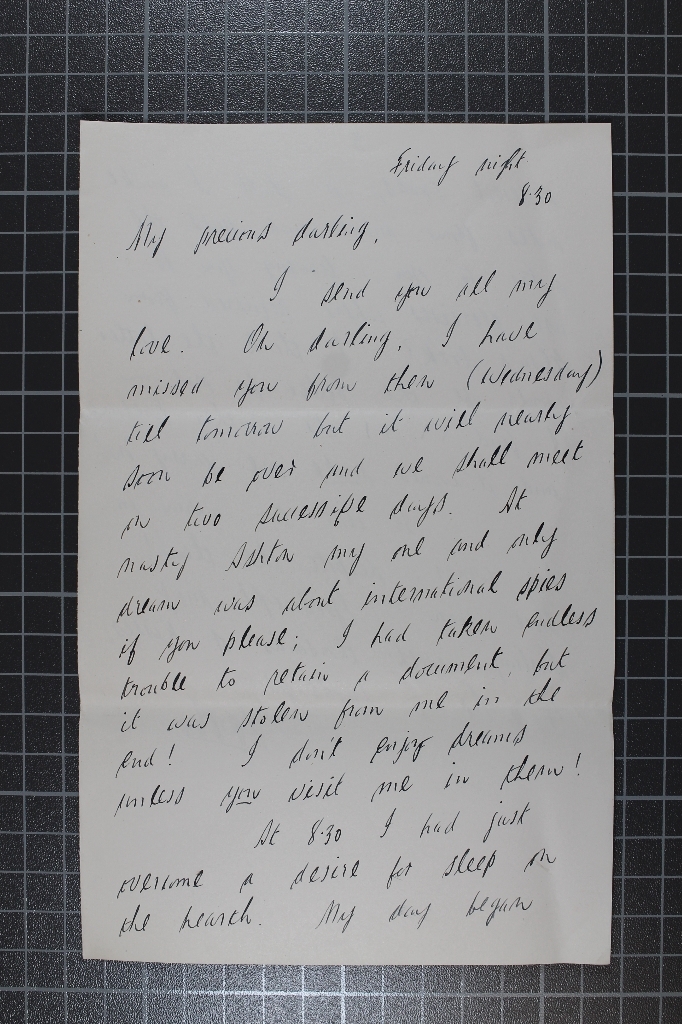 Friday night
8.30
My precious darling,
I send you all my
love. Oh darling, I have
missed you from then (Wednesday)
till tomorrow but it will nearly
soon be over and we shall meet
on two successive days. At
nasty Ashton my one and only
dream was about international spies
if you please; I had taken endless
trouble to retain a document, but
it was stolen from me in the
end! I don't enjoy dreams
unless you visit me in them!
At 8.30 I had just
overcome a desire for sleep on
the hearth. My day began